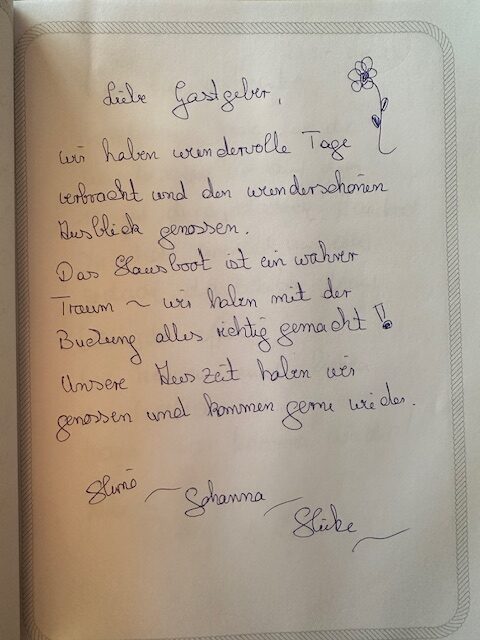 Liebe Gastgeber,
wir haben wundervolle Tage
verbracht und den wunderschönen
Ausblick genossen.
Das Hausboot ist ein wahrer
Traum ~ wir haben mit der
Buchung alles richtig gemacht!
Unsere Auszeit haben wir
genossen und kommen gerne wieder.
Johanna